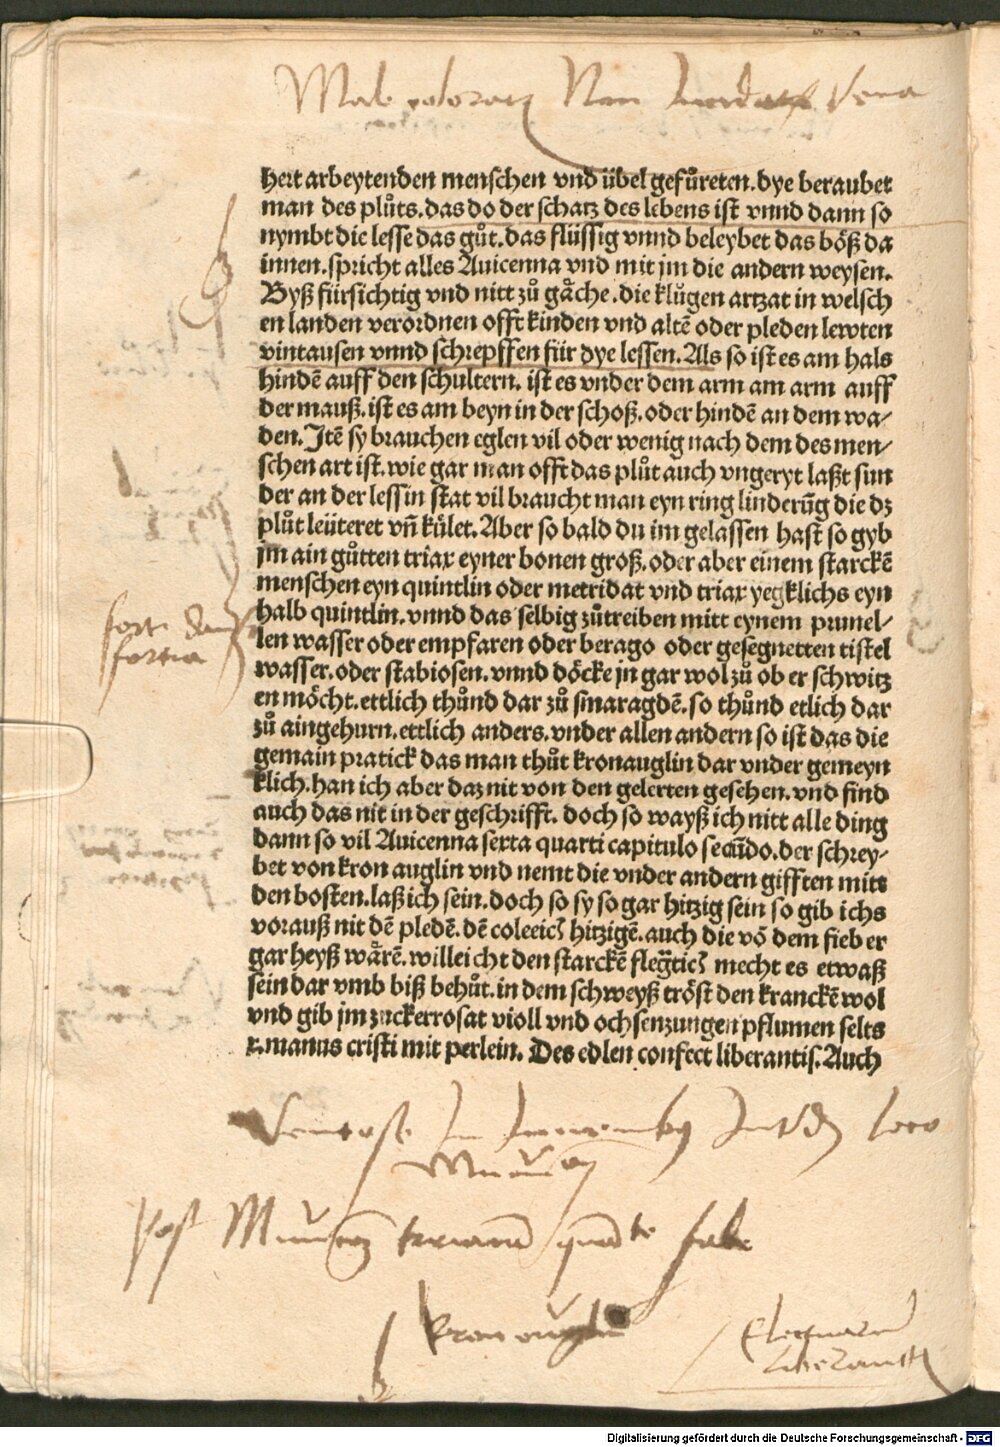 Male colorati Non Vena
hert arbeytenden menschen vnd übel gefůreten. dye beraubet
man des plůts. das do der schatz des lebens ist vnnd dann so
nymbt die lesse das gůt. das flüssig vnnd beleybet das böß da
innen. spricht alles Auicenna vnd mit jm die andern weysen.
Byß fürsichtig vnd nitt zů gåche. die klůgen artzat in welsch
en landen verordnen offt kinden vnd altē oder pleden lewten
vintausen vnnd schrepffen für dye lessen. Als so ist es am hals
hindē auff den schultern. ist es vnder dem arm am arm auff
der mauß. ist es am beyn in der schoß. oder hindē an dem wa⸗
den. Itē sy brauchen eglen vil oder wenig nach dem des men⸗
schen art ist. wie gar man offt das plůt auch vngeryt laßt sun
der an der lessin stat vil braucht man eyn ring linderūg die dz
plůt leüteret vn̄ kůlet. Aber so bald du im gelassen hast so gyb
jm ain gůtten triax eyner bonen groß. oder aber einem starckē
menschen eyn quintlin oder metridat vnd triax yegklichs eyn
halb quintlin. vnnd das selbig zůtreiben mitt eynem prunel⸗
len wasser oder empfaren oder berago oder gesegnetten tistel
wasser. oder stabiosen. vnnd döcke jn gar wol zů ob er schwitz
en möcht. ettlich thůnd dar zů smaragdē. so thůnd etlich dar
zů aingehurn. ettlich anders. vnder allen andern so ist das die
gemain pratick das man thůt kronauglin dar vnder gemeyn
klich. han ich aber daz nit von den gelerten gesehen. vnd find
auch das nit in der geschrifft. doch so wayß ich nitt alle ding
dann so vil Auicenna sexta quarti capitulo secūdo. der schrey⸗
bet von kron auglin vnd nemt die vnder andern gifften mitt
den bosten. laß ich sein. doch so sy so gar hitzig sein so gib ichs
vorauß nit dē pledē. dē coleric hitzigē. auch die vō dem fieber
gar heyß wårē. willeicht den starckē flegtic mecht es etwaß
sein dar vmb biß behůt. in dem schweyß tröst den kranckē wol
vnd gib jm zuckerrosat violl vnd ochsenzungen pflumen selts
x. manus cristi mit perlein. Des edlen confect liberantis. Auch
forti
fortia
Ventose loco
Post faba
kron auglin
Electuarium
liberantis
Digitalisierung gefördert durch die Deutsche Forschungsgemeinschaft - DFG